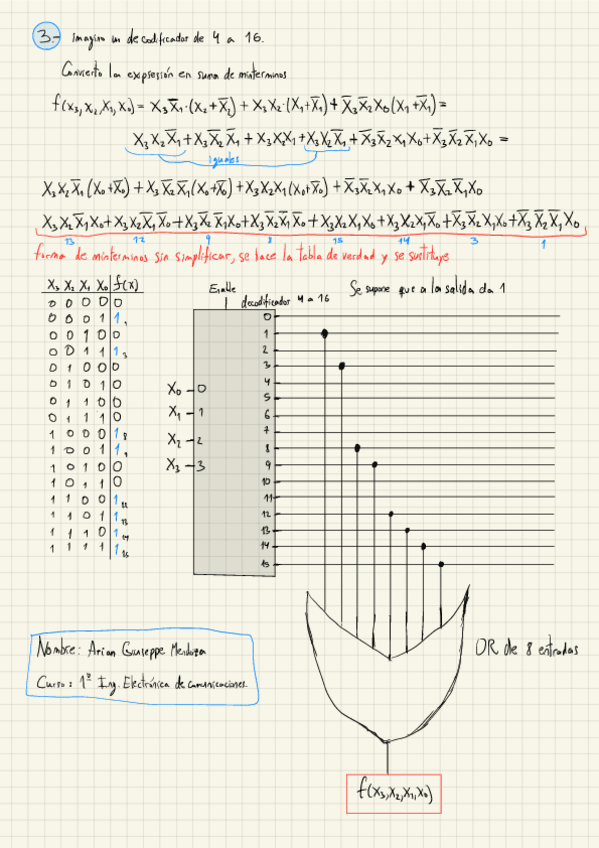 3.- Imagino un decodificador de 4 a 16.
Convierto la expresión en suma de minterminos
f(x₃,x₂,x₁,x₀) = X₃X̅₁·(X₂+X̅₂) + X₃X₂·(X₁+X̅₁) + X̅₃X̅₂X₀(X₁+X̅₁) =
X₃X₂X̅₁ + X₃X̅₂X̅₁ + X₃X₂X₁ + X₃X₂X̅₁ + X̅₃X̅₂X₁X₀ + X̅₃X̅₂X̅₁X₀ =
iguales
X₃X₂X̅₁(X₀+X̅₀) + X₃X̅₂X̅₁(X₀+X̅₀) + X₃X₂X₁(X₀+X̅₀) + X̅₃X̅₂X₁X₀ + X̅₃X̅₂X̅₁X₀
X₃X₂X̅₁X₀ + X₃X₂X̅₁X̅₀ + X₃X̅₂X̅₁X₀ + X₃X̅₂X̅₁X̅₀ + X₃X₂X₁X₀ + X₃X₂X₁X̅₀ + X̅₃X̅₂X₁X₀ + X̅₃X̅₂X̅₁X₀
13 12 9 8 15 14 3 1
forma de minterminos sin simplificar, se hace la tabla de verdad y se sustituye
X₃ X₂ X₁ X₀ f(x)
0 0 0 0 0
0 0 0 1 1 ₁
0 0 1 0 0
0 0 1 1 1 ₃
0 1 0 0 0
0 1 0 1 0
0 1 1 0 0
0 1 1 1 0
1 0 0 0 1 ₈
1 0 0 1 1 ₉
1 0 1 0 0
1 0 1 1 0
1 1 0 0 1 ₁₂
1 1 0 1 1 ₁₃
1 1 1 0 1 ₁₄
1 1 1 1 1 ₁₅
Enable
decodificador 4 a 16
Se supone que a la salida da 1
X₀ - 0
X₁ - 1
X₂ - 2
X₃ - 3
0
1
2
3
4
5
6
7
8
9
10
11
12
13
14
15
OR de 8 entradas
f(x₃,x₂,x₁,x₀)
Nombre: Arian Giuseppe Mendoza
Curso: 1º Ing. Electrónica de comunicaciones.